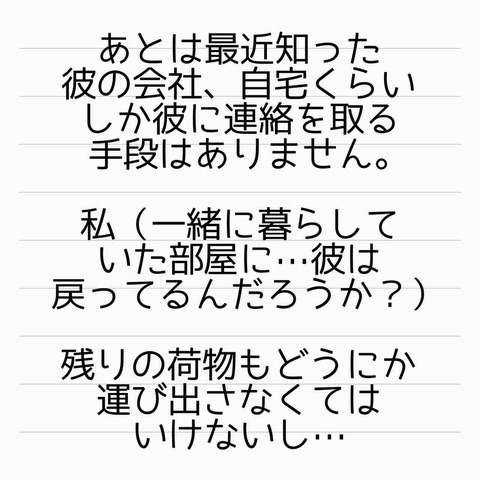 あとは最近知った
彼の会社、自宅くらい
しか彼に連絡を取る
手段はありません。
私（一緒に暮らして
いた部屋に…彼は
戻ってるんだろうか？）
残りの荷物もどうにか
運び出さなくては
いけないし…